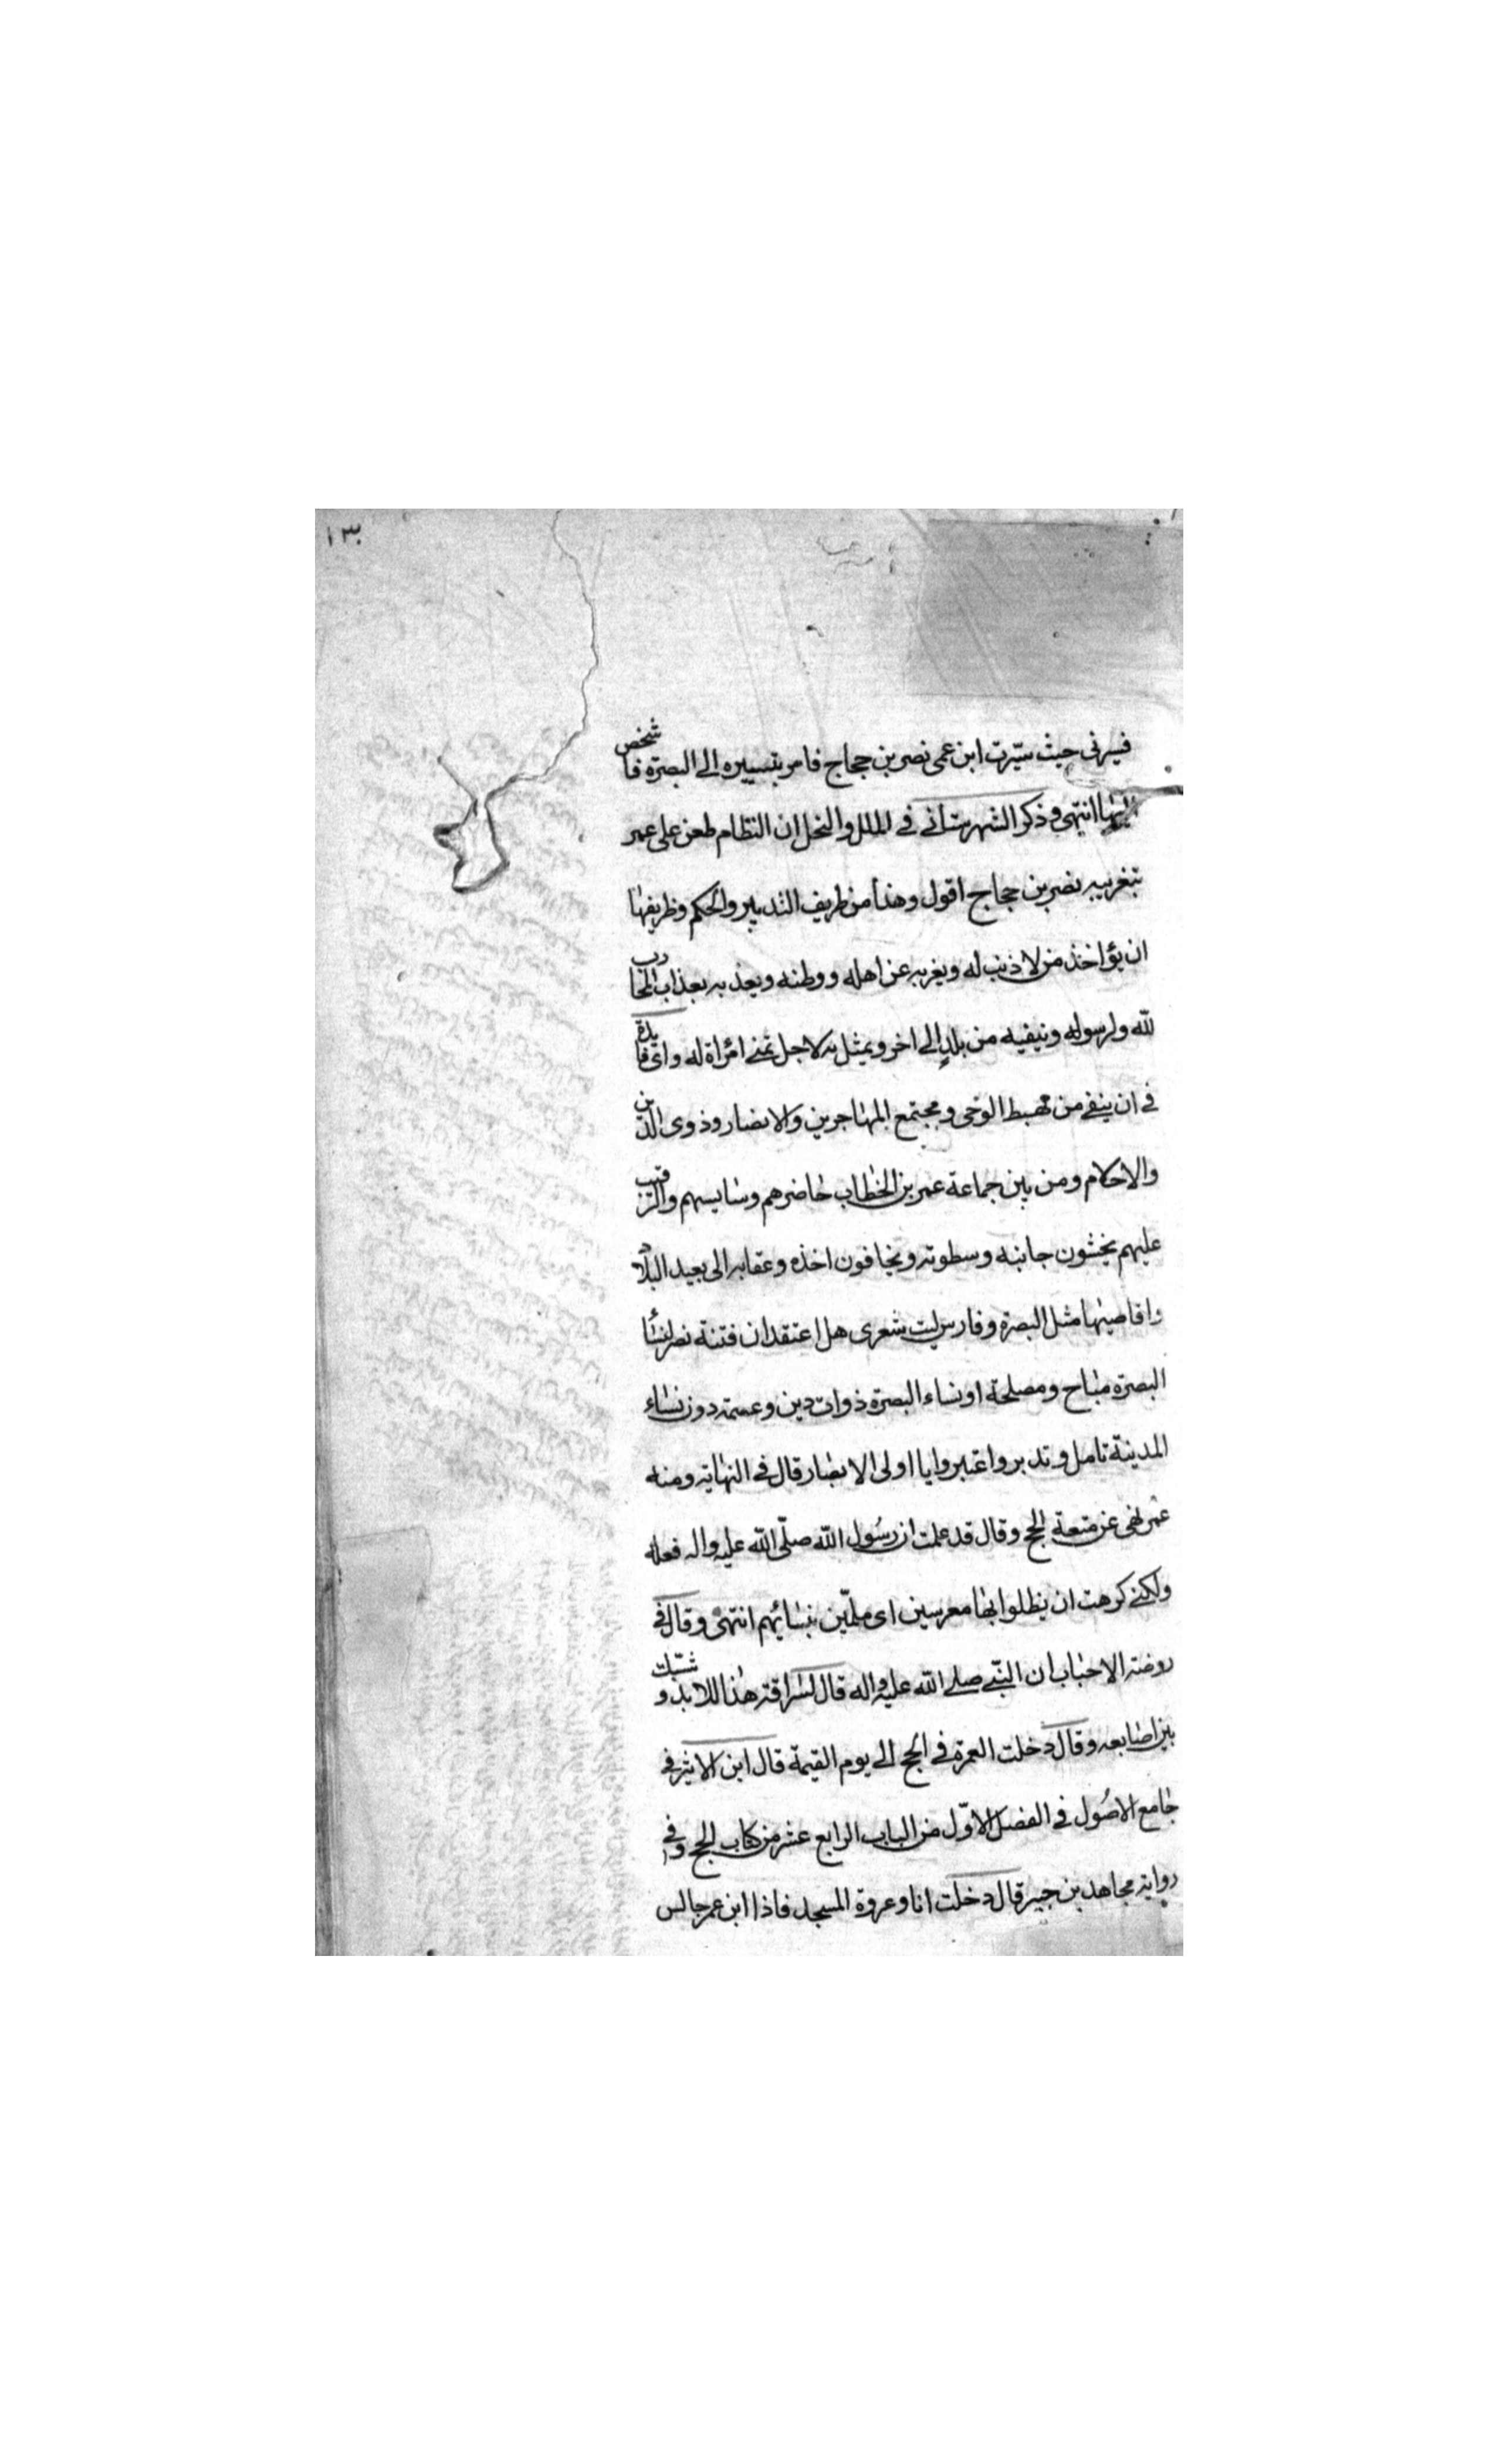 ١٣٠
فسيرنى حيث سيّرت ابن عمى نصر بن حجاج فامر بتسييره الى البصرة فاشخص
اليها انتهى وذكر الشهرستانے فے الملل والنحل ان النظام طعن على عمر
بتغريبه نصر بن حجاج اقول وهذا من طريف التدبير والحكم وظريفها
ان يؤاخذ من لا ذنب له ويغربه عن اهله ووطنه ويعذبه بعذاب المحارب
لله ولرسوله وينفيه من بلد الے اخر ويمثل به لاجل تمنے امرأة له واى فايدة
فے ان ينفے من مهبط الوحى ومجتمع المهاجرين والانصار وذوى الدين
والاحكام ومن بين جماعة عمر بن الخطاب حاضرهم وسايسهم والرقيب
عليهم يخشون جانبه وسطوته ويخافون اخذه وعقابه الى بعيد البلاد
واقاصيها مثل البصرة وفارس ليت شعرى هل اعتقد ان فتنة نصر لنساء
البصرة مباح ومصلحة او نساء البصرة ذوات دين وعصمة دون نساء
المدينة تامل وتدبر واعتبروا يا اولى الابصار قال فے النهاية ومنه
عمر نهى عن متعة الحج وقال قد علمت ان رسول الله صلّى الله عليه واله فعله
ولكنے كرهت ان يظلوا بها معرسين اى ملمّين بنسائهم انتهى وقال فے
روضة الاحباب ان النبّے صلے الله عليه واله قال لسراقة هذا للابد وشبّك
بين اصابعه وقال دخلت العمرة فے الحج الے يوم القيمة قال ابن الاثير فے
جامع الاصول فے الفصل الاوّل من الباب الرابع عشر من كتاب الحج وفے
رواية مجاهد بن جبير قال دخلت انا وعروة المسجد فاذا ابن عمر جالس